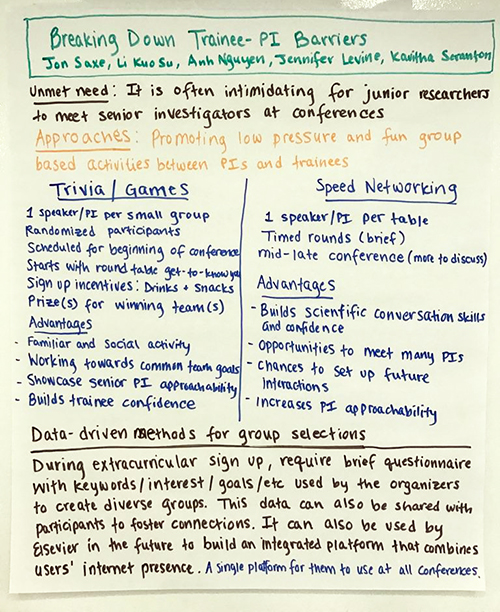 Breaking Down Trainee-PI Barriers
Jon Saxe, Li Kuo Su, Anh Nguyen, Jennifer Levine, Kavitha Scranton
Unmet need: It is often intimidating for junior researchers
to meet senior investigators at conferences
Approaches: Promoting low pressure and fun group
based activities between PIs and trainees
Trivia/Games
1 speaker/PI per small group
Randomized participants
Scheduled for beginning of conference
Starts with round table get-to-know you
Sign up incentives: Drinks + snacks
Prize(s) for winning team(s)
Advantages
- Familiar and social activity
- Working towards common team goals
- Showcase senior PI approachability
- Builds trainee confidence
Speed Networking
1 speaker/PI per table
Timed rounds (brief)
mid-late conference (more to discuss)
Advantages
- Builds scientific conversation skills
and confidence
- Opportunities to meet many PIs
- chances to set up future
interactions
- Increases PI approachability
Data-driven methods for group selections
During extracurricular sign up, require brief questionnaire
with keywords/interest/goals/etc used by the organizers
to create diverse groups. This data can also be shared with
participants to foster connections. It can also be used by
Elsevier in the future to build an integrated platform that combines
users' internet presence. A single platform for them to use at all conferences.